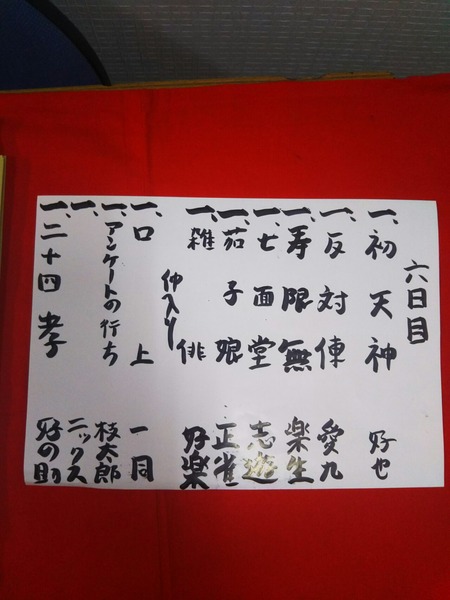 六日目
一、初天神 好也
一、反対俥 愛九
一、寿限無 楽生
一、七面堂 志遊
一、茄子娘 正雀
一、雑俳 好楽
仲入り
一、口上 一同
一、アンケートの行ち 枝太郎
一、 ニックス
一、二十四孝 好の助